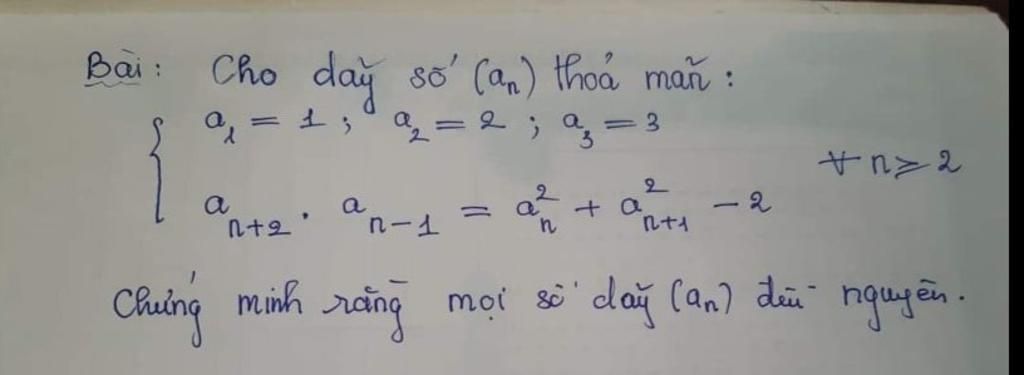 Bài: Cho dãy số (aₙ) thoả mãn:
{ a₁ = 1 ; a₂ = 2 ; a₃ = 3
∀ n ≥ 2
aₙ₊₂ . aₙ₋₁ = aₙ² + aₙ₊₁² - 2
Chứng minh rằng mọi số dãy (aₙ) đều nguyên.